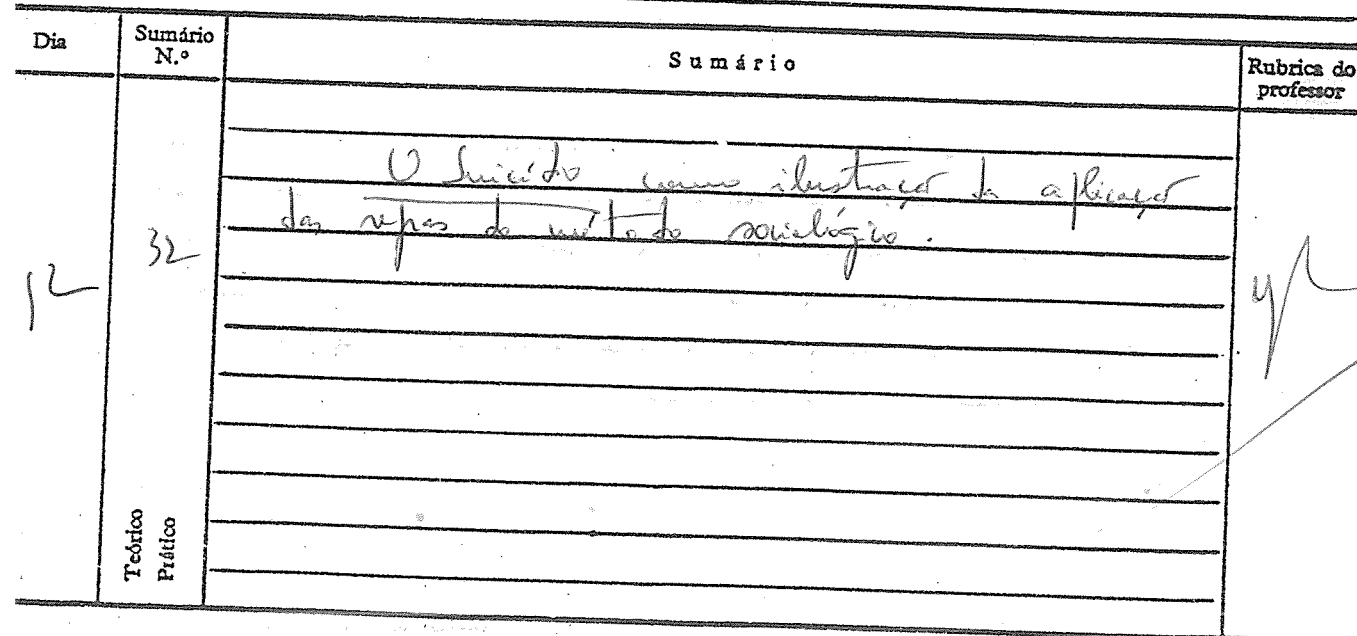 Dia
Sumário N.º
Sumário
Rubrica do professor
O Suicídio como ilustração da aplicação
das regras do método sociológico.
12
32
Teórico
Prático